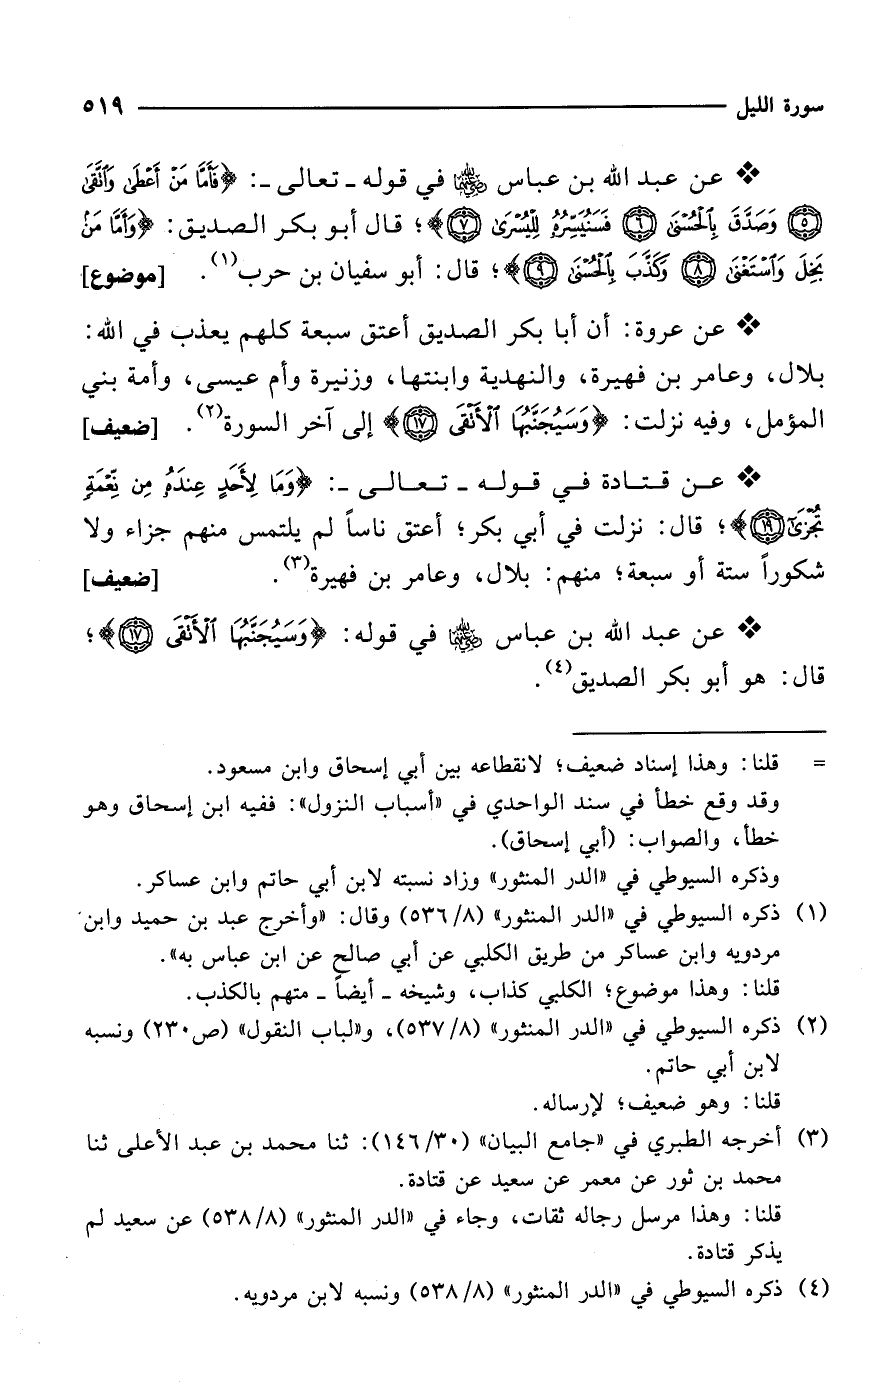 سورة الليل ٥١٩
❖ عن عبد الله بن عباس رضي الله عنهما في قوله ـ تعالى ـ: ﴿فَأَمَّا مَنْ أَعْطَىٰ وَٱتَّقَىٰ
٥ وَصَدَّقَ بِٱلْحُسْنَىٰ ٦ فَسَنُيَسِّرُهُۥ لِلْيُسْرَىٰ ٧﴾؛ قال أبو بكر الصديق: ﴿وَأَمَّا مَنۢ
بَخِلَ وَٱسْتَغْنَىٰ ٨ وَكَذَّبَ بِٱلْحُسْنَىٰ ٩﴾؛ قال: أبو سفيان بن حرب(١). [موضوع]
❖ عن عروة: أن أبا بكر الصديق أعتق سبعة كلهم يعذب في الله:
بلال، وعامر بن فهيرة، والنهدية وابنتها، وزنيرة وأم عيسى، وأمة بني
المؤمل، وفيه نزلت: ﴿وَسَيُجَنَّبُهَا ٱلْأَتْقَى ١٧﴾ إلى آخر السورة(٢). [ضعيف]
❖ عن قتادة في قوله ـ تعالى ـ: ﴿وَمَا لِأَحَدٍ عِندَهُۥ مِن نِّعْمَةٍ
تُجْزَىٰٓ ١٩﴾؛ قال: نزلت في أبي بكر؛ أعتق ناساً لم يلتمس منهم جزاء ولا
شكوراً ستة أو سبعة؛ منهم: بلال، وعامر بن فهيرة(٣). [ضعيف]
❖ عن عبد الله بن عباس رضي الله عنهما في قوله: ﴿وَسَيُجَنَّبُهَا ٱلْأَتْقَى ١٧﴾؛
قال: هو أبو بكر الصديق(٤).
= قلنا: وهذا إسناد ضعيف؛ لانقطاعه بين أبي إسحاق وابن مسعود.
وقد وقع خطأ في سند الواحدي في «أسباب النزول»: ففيه ابن إسحاق وهو
خطأ، والصواب: (أبي إسحاق).
وذكره السيوطي في «الدر المنثور» وزاد نسبته لابن أبي حاتم وابن عساكر.
(١) ذكره السيوطي في «الدر المنثور» (٨/ ٥٣٦) وقال: «وأخرج عبد بن حميد وابن
مردويه وابن عساكر من طريق الكلبي عن أبي صالح عن ابن عباس به».
قلنا: وهذا موضوع؛ الكلبي كذاب، وشيخه ـ أيضاً ـ متهم بالكذب.
(٢) ذكره السيوطي في «الدر المنثور» (٨/ ٥٣٧)، و«لباب النقول» (ص٢٣٠) ونسبه
لابن أبي حاتم.
قلنا: وهو ضعيف؛ لإرساله.
(٣) أخرجه الطبري في «جامع البيان» (٣٠/ ١٤٦): ثنا محمد بن عبد الأعلى ثنا
محمد بن ثور عن معمر عن سعيد عن قتادة.
قلنا: وهذا مرسل رجاله ثقات، وجاء في «الدر المنثور» (٨/ ٥٣٨) عن سعيد لم
يذكر قتادة.
(٤) ذكره السيوطي في «الدر المنثور» (٨/ ٥٣٨) ونسبه لابن مردويه.